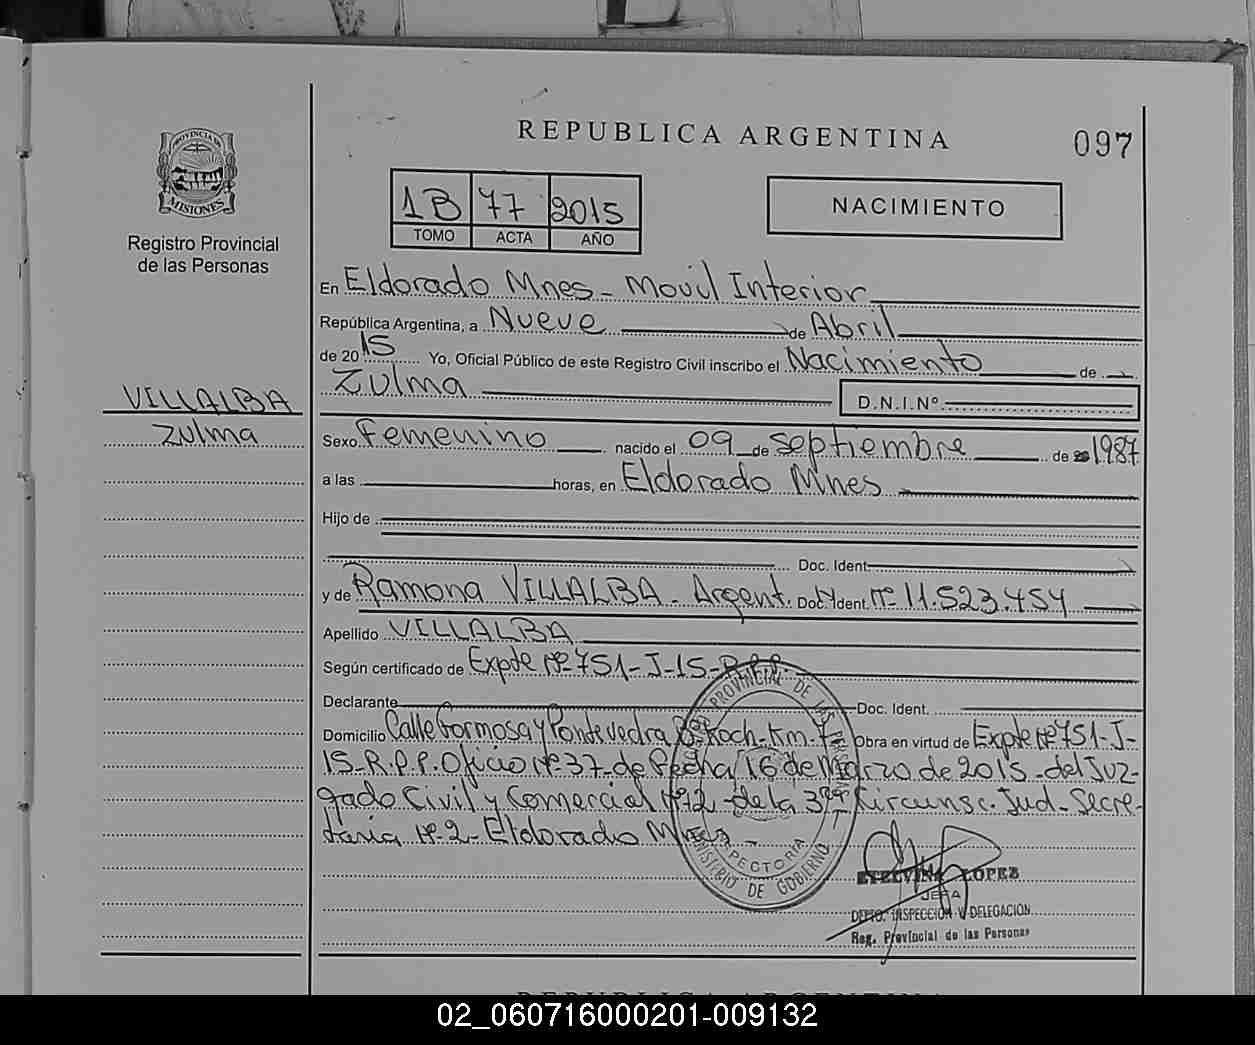 REPUBLICA ARGENTINA
097
PROVINCIA DE
MISIONES
Registro Provincial
de las Personas
1B 77 2015
TOMO ACTA AÑO
NACIMIENTO
En Eldorado Mnes- Movil Interior
República Argentina, a Nueve de Abril
de 2015 Yo, Oficial Público de este Registro Civil inscribo el Nacimiento de
Zulma D.N.I.Nº
VILLALBA
Zulma
Sexo Femenino nacido el 09 de septiembre de 1987
a las horas, en Eldorado Mnes
Hijo de
Doc. Ident
y de Ramona VILLALBA. Argent. Doc. Ident. Nº 11.523.454
Apellido VILLALBA
Según certificado de Expte Nº 751-J-15-R.P.P.
Declarante Doc. Ident.
Domicilio Calle Formosa y Pontevedra B. Koch-Km.7 Obra en virtud de Expte Nº 751-J-
15-R.P.P. Oficio Nº 37-de fecha 16 de Marzo de 2015-del Juz-
gado Civil y Comercial Nº 2-de la 3ra Circunsc. Jud-Secre-
taria Nº 2-Eldorado Mnes-
PROVINCIAL DE LAS PERSONAS
INSPECTORIA
MINISTERIO DE GOBIERNO
ETELVINA LOPEZ
JEFA
DEPTO. INSPECCION Y DELEGACION
Reg. Provincial de las Personas
REPUBLICA ARGENTINA
02_060716000201-009132